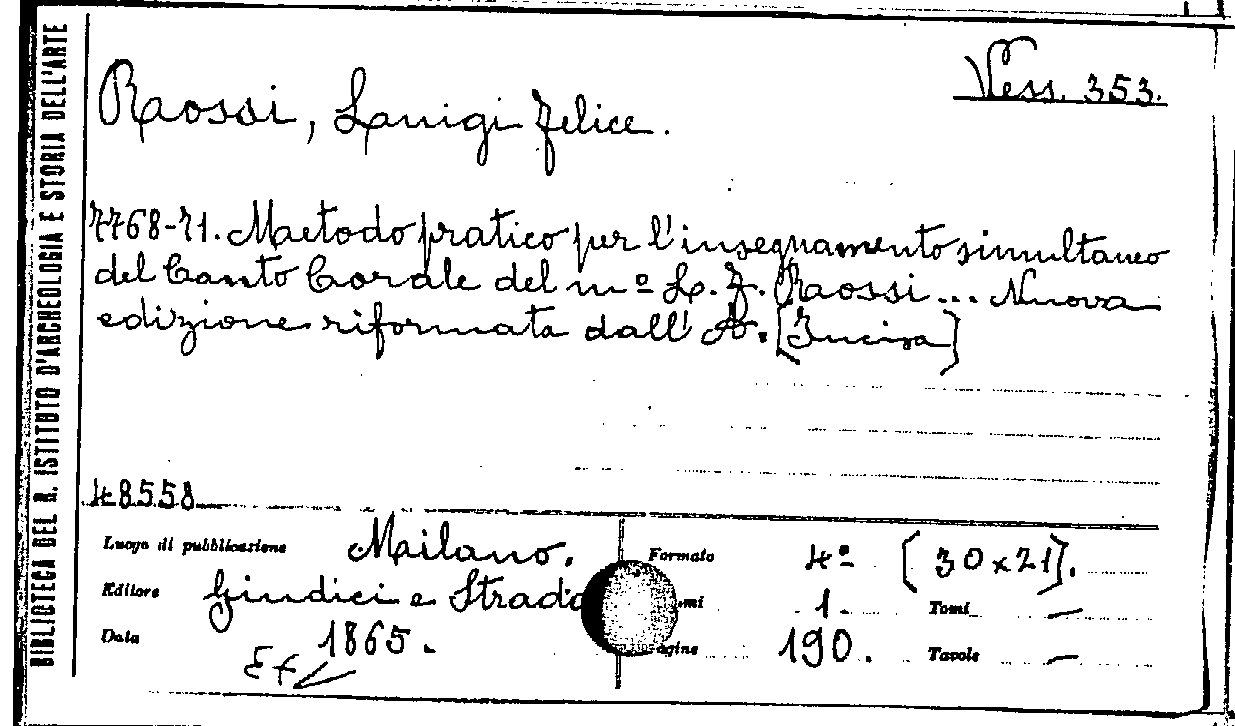 BIBLIOTECA DEL R. ISTITUTO D'ARCHEOLOGIA E STORIA DELL'ARTE
Vess. 353.
Rossi, Luigi Felice.
7768-71. Metodo pratico per l'insegnamento simultaneo
del Canto Corale del mº L. F. Rossi... Nuova
edizione riformata dall'A. [Incisa]
48558
Luogo di pubblicazione Milano. Formato 4º [30x21].
Editore Giudici e Strada 1. Tomi —
Data 1865. 190. Tavole —